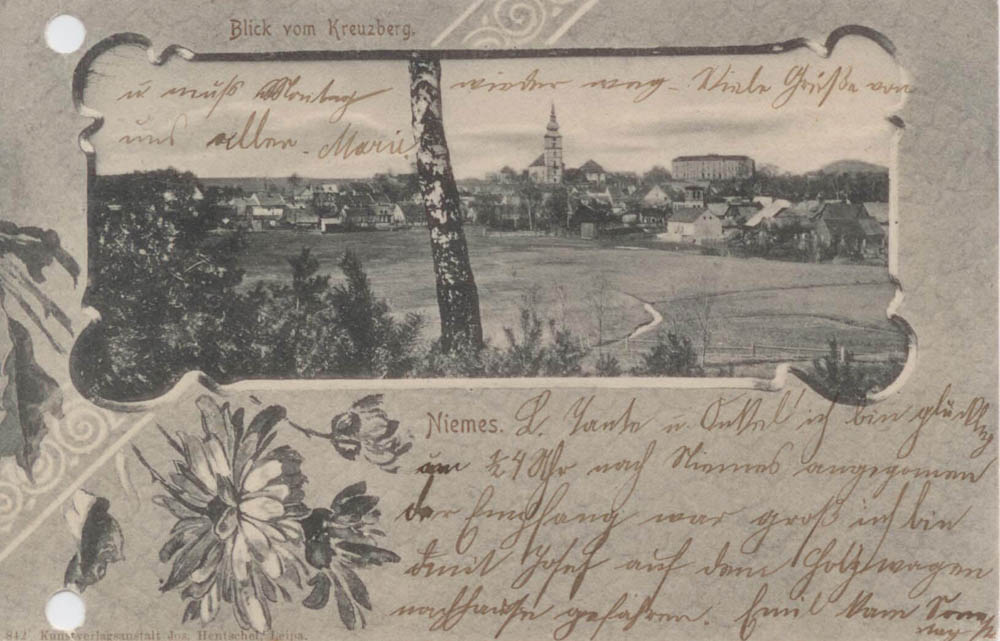 Blick vom Kreuzberg.
u muß Montag wieder weg - Viele Grüße von
uns allen. Marie
Niemes. L. Tante u. Onkel ich bin glücklig
um ½4 Uhr nach Niemes angegomen
der Empfang war groß ich bin
damit Josef auf dem Holzwagen
nachhause gefahren. Emil kam Sonn
tag
842 Kunstverlagsanstalt Jos. Hentschel, Leipa.